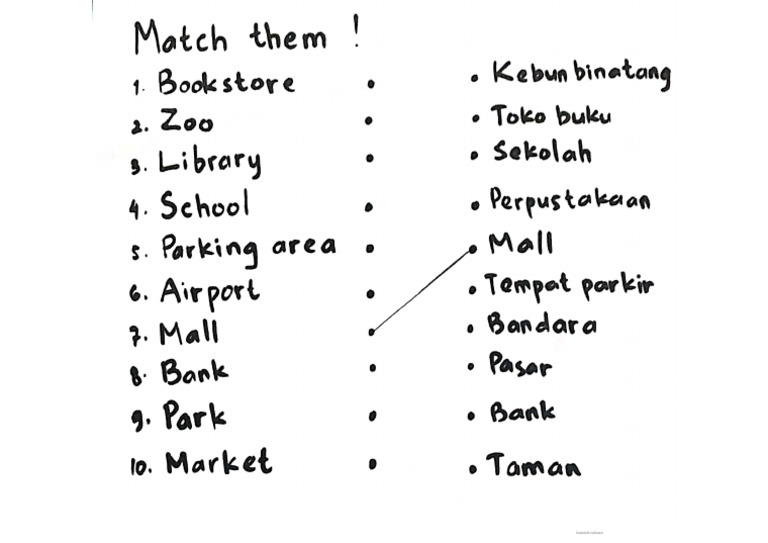 Match them !
1. Bookstore • • Kebun binatang
2. Zoo • • Toko buku
3. Library • • Sekolah
4. School • • Perpustakaan
5. Parking area • • Mall
6. Airport • • Tempat parkir
7. Mall • • Bandara
8. Bank • • Pasar
9. Park • • Bank
10. Market • • Taman